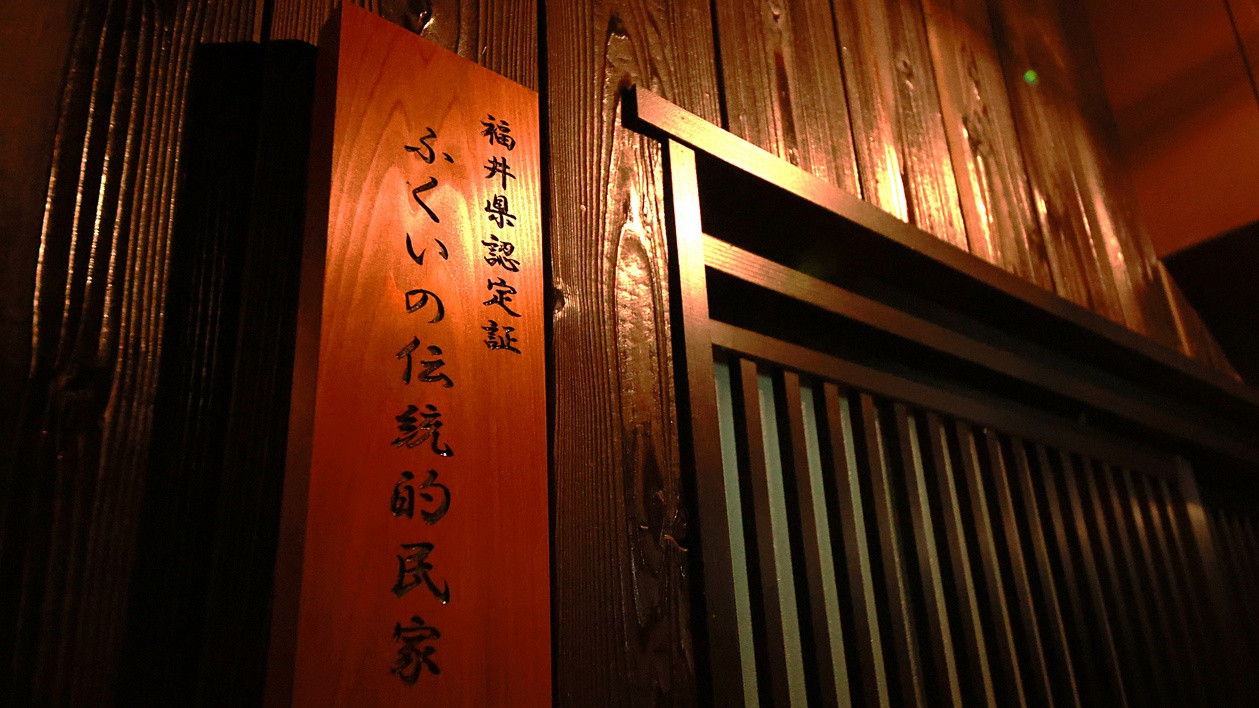 福井県認定証
ふくいの伝統的民家